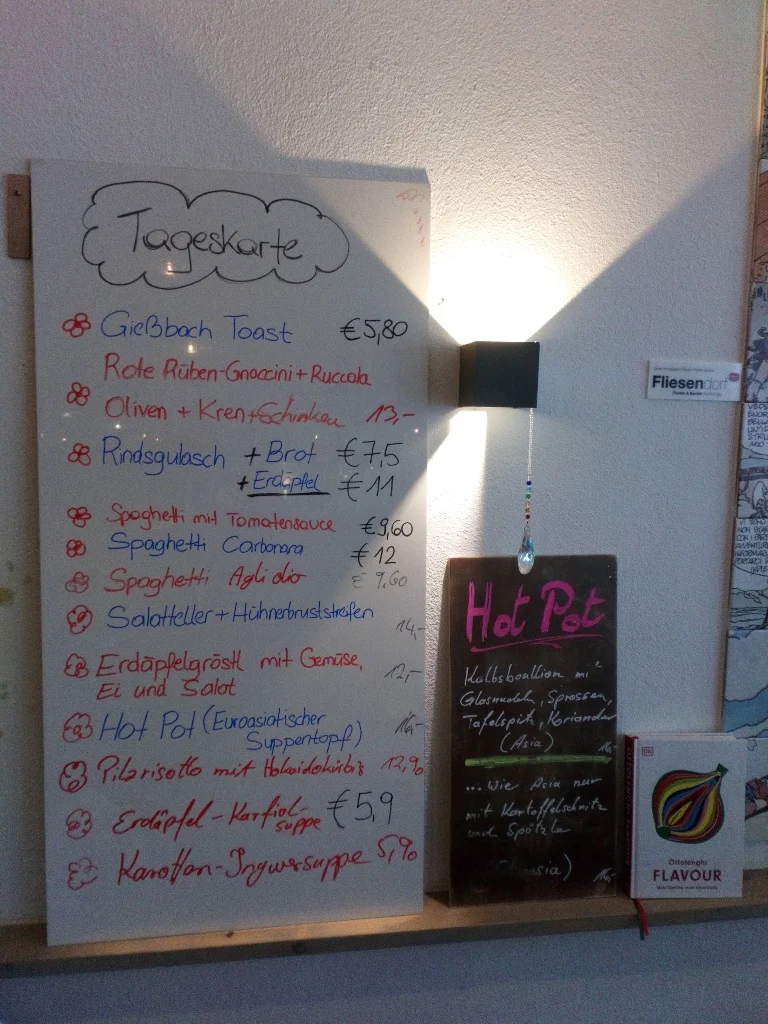 Tageskarte
Gießbach Toast €5,80
Rote Rüben-Gnoccini+Ruccola
Oliven + Kren+Schinken 13,-
Rindsgulasch + Brot €7,5
+Erdäpfel €11
Spaghetti mit Tomatensauce €9,60
Spaghetti Carbonara €12
Spaghetti Aglidio € 9,60
Salatteller+Hühnerbruststreifen 14,-
Erdäpfelgröstl mit Gemüse, 12,-
Ei und Salat
Hot Pot (Euroasiatischer 16,-
Suppentopf)
Pilzrisotto mit Hokaidokürbis 12,90
Erdäpfel-Karfiol- €5,9
suppe
Karotten-Ingwersuppe 5,90
Hot Pot
Kalbsbouillon mit
Glasnudeln, Sprossen,
Tafelspitz, Koriander
(Asia) 16,-
... Wie Asia nur
mit Kartoffelschnitz
und Spätzle
16,-
Fliesendorf
DK
Ottolenghi
FLAVOUR
VEDE
ENOR
BELLA
UN'US
STRU
MIO